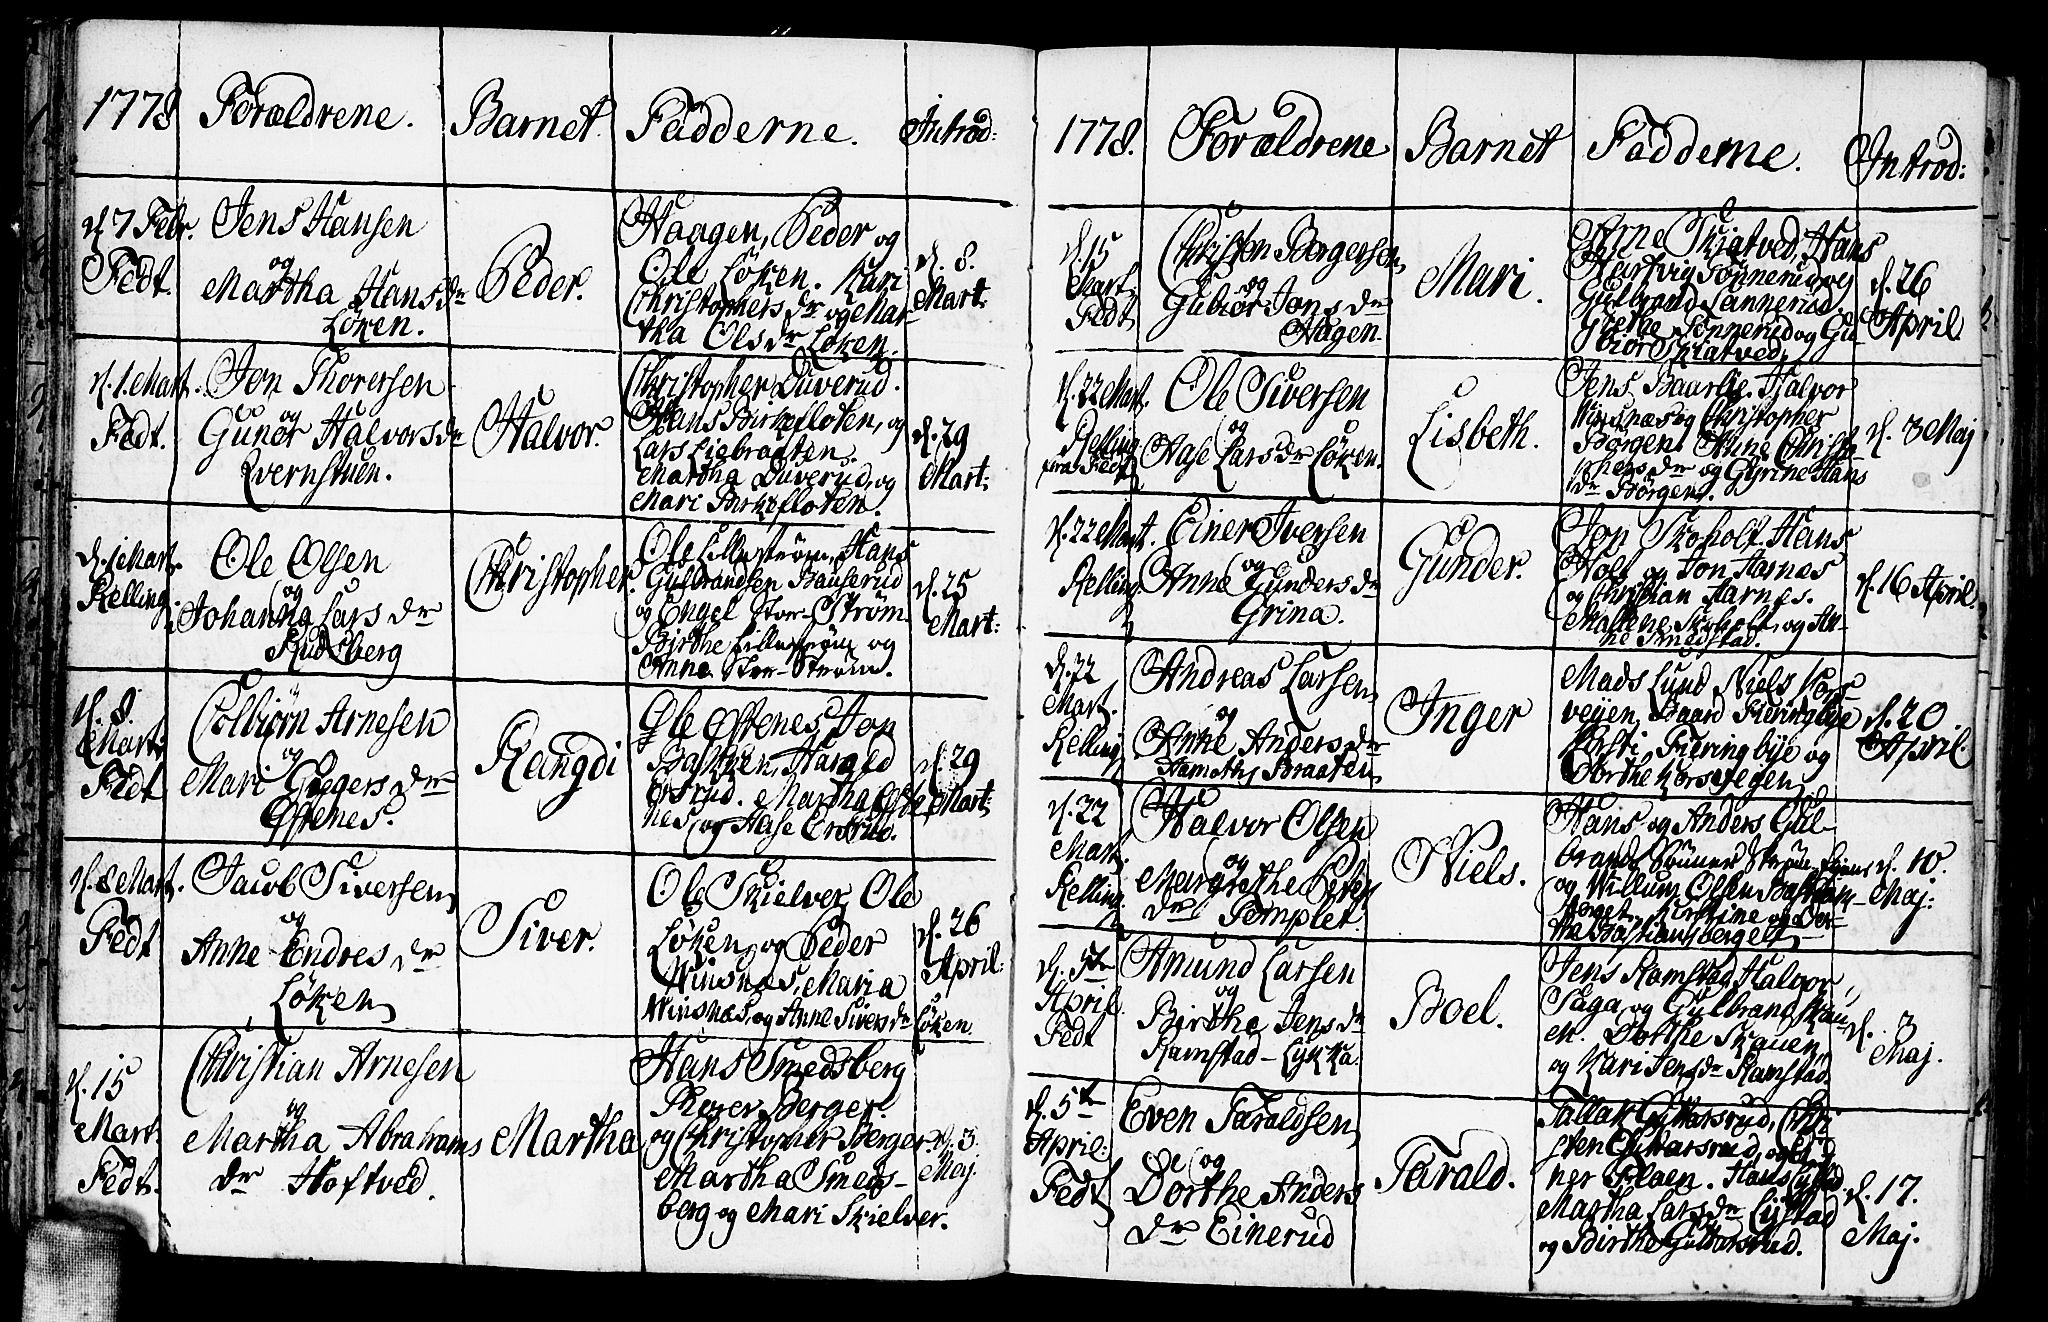 1778 Forældrene. Barnet. Fadderne. Introd:
d. 7 Febr.
Fedt.
Jens Hansen
og
Martha Hansdr
Løken.
Peder.
Haagen, Peder og
Ole Løken. Kari
Christophersdr og Mar-
tha Olsdr Løken.
d. 8.
Mart:
d. 1. Mart.
Fedt.
Jon Thorersen
og
Gunør Halvorsdr
Qvernstuen.
Halvor.
Christopher Duverud.
Hans Birkefloten, og
Lars Liebraaten.
Martha Duverud, og
Mari Birkefloten.
d. 29
Mart:
d. 1 Mart.
Relling.
Ole Olsen
og
Johanna Lars dr
Rudsberg
Christopher.
Ole Lillestrøm, Hans
Gulbrandsen Bauserud
og Engel Stor-Strøm
Birthe Lillestrøm og
Anne Stor-Strøm.
d. 25
Mart:
d. 8.
Mart:
Fedt
Colbiørn Arnesen
og
Mari Gregersdr
Østenes.
Rangdi
Ole Østenes, Jon
Bakken, Harald
Erterud. Martha Øste
nes, og Aase Erterud.
d. 29
Mart:
d. 8 Mart.
Fedt
Jacob Siversen
og
Anne Endres dr
Løken
Siver.
Ole Skielver, Ole
Løken, og Peder
Winsnæs, Maria
Winsnæs, og Anne Siversdr Løken.
d. 26
April:
d. 15
Mart:
Fedt.
Christian Arnesen
og
Martha Abrahams
dr Hoftved.
Martha
Hans Smedsberg
Thorer Berger
og Christopher Berger.
Martha Smeds-
berg og Mari Skielver.
d. 3.
Maj.
1778. Forældrene Barnet Fadderne. Introd:
d. 15
Mart.
Fedt
Christen Borgersen
og
Gubiør Jonsdr
Hagen.
Mari.
Arne Skiatved, Hans
Hartvig Tønnerud, og
Gulbrand Tønnerud
Grethe Tønnerud og Gu-
biør Skiatved.
d. 26
April
d. 22 Mart.
Relling
fra Fedt
Ole Siversen
og
Aase Larsdr Løken.
Lisbeth.
Jens Baarlie, Halvor
Winsnæs og Christopher
Børgen. Anne Christo-
phersdr og Gyrine Hans
dr Børgen.
d. 3 Maj
d. 22 Mart.
Relling.
Einer Iversen
og
Anne Gundersdr
Grina.
Gunder.
Jon Skoholt, Hans
Holt og Jon Aarnæs
og Christian Aarnes.
Mallene Skoholt, og An-
ne Smedstad.
d. 16 April.
d. 22
Mart.
Relling
Andreas Larsen
og
Anne Andersdr
Braaten
Inger
Mads Lund, Niels Kors
vejen, Baard Fieringbye
Kersti Fieringbye og
Dorthe Korsvegen
d. 20
April.
d. 22
Mart.
Relling.
Halvor Olsen
og
Margrethe Peders
dr Templet
Niels.
Hans og Anders Gul-
og Willum Olsen
Kirstine og Dor-
the Bastiansberget
d. 10.
Maj:
d. 5te
April.
Fedt
Amund Larsen
og
Birthe Jensdr
Ramstad-Lykka.
Boel.
Jens Ramstad, Halvor
Saga, og Gulbrand Skau-
en. Dorthe Skauen
og Kari Jensdr Ramstad.
d. 3
Maj.
d. 5te
April:
Fedt
Even Taraldsen
og
Dorthe Anders
dr Einerud
Tarald.
Tallak Guttersrud, Chri
sten Guttersrud, og Ei-
ner Floen. Hans Lystad
Martha Larsdr Lystad
og Birthe Guttersrud.
d. 17.
Maj.